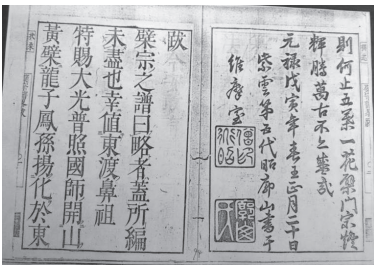 則何止五葉一花檗門宗燈
輝騰萬古不亦善哉
元祿戊寅年春王正月二十日
紫雲第五代昭廓山書于
維摩室
跋
檗宗之譜曰略者蓋所編
未盡也幸值東渡鼻祖
特賜大光普照國師開山
黃檗龍子鳳孫揚化於東